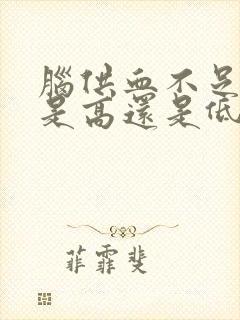 腦供血不足
是高還是低
菲霏斐